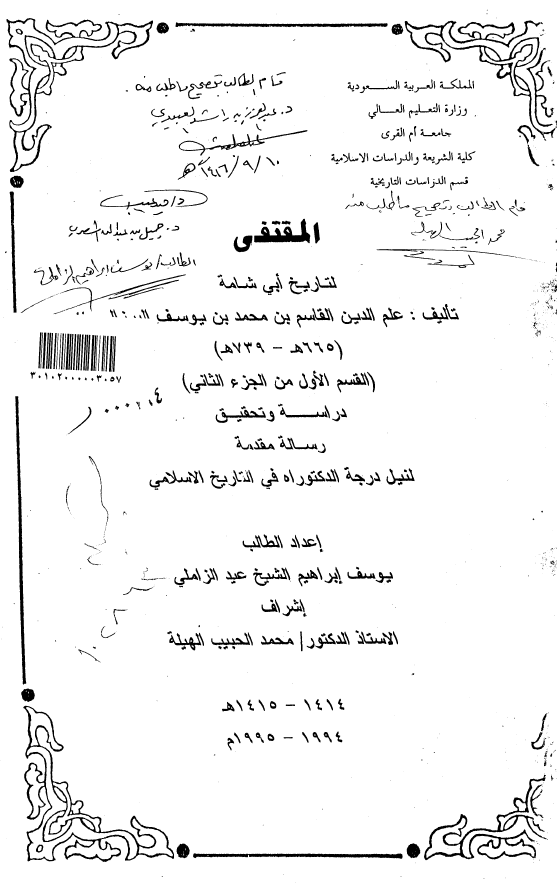 المملكة العربية السعودية
وزارة التعليم العالي
جامعة أم القرى
كلية الشريعة والدراسات الاسلامية
قسم الدراسات التاريخية
قام الطالب بتصحيح ما طلب منه
د. عبدالعزيز بن راشد العبيدي
١٤١٦/٩/١٠هـ
قام الطالب بتصحيح ما طلب منه
محمد الحبيب الهيلة
الطالب/ يوسف ابراهيم الزاملي
المقتفى
لتاريخ أبي شامة
تأليف : علم الدين القاسم بن محمد بن يوسف
(٦٦٥هـ - ٧٣٩هـ)
(القسم الأول من الجزء الثاني)
٣٠١٠٢٠٠٠٠٠٣٠٥٧
دراسة وتحقيق
رسالة مقدمة
لنيل درجة الدكتوراه في التاريخ الاسلامي
إعداد الطالب
يوسف إبراهيم الشيخ عيد الزاملي
إشراف
الاستاذ الدكتور/ محمد الحبيب الهيلة
١٤١٤ - ١٤١٥هـ
١٩٩٤ - ١٩٩٥م